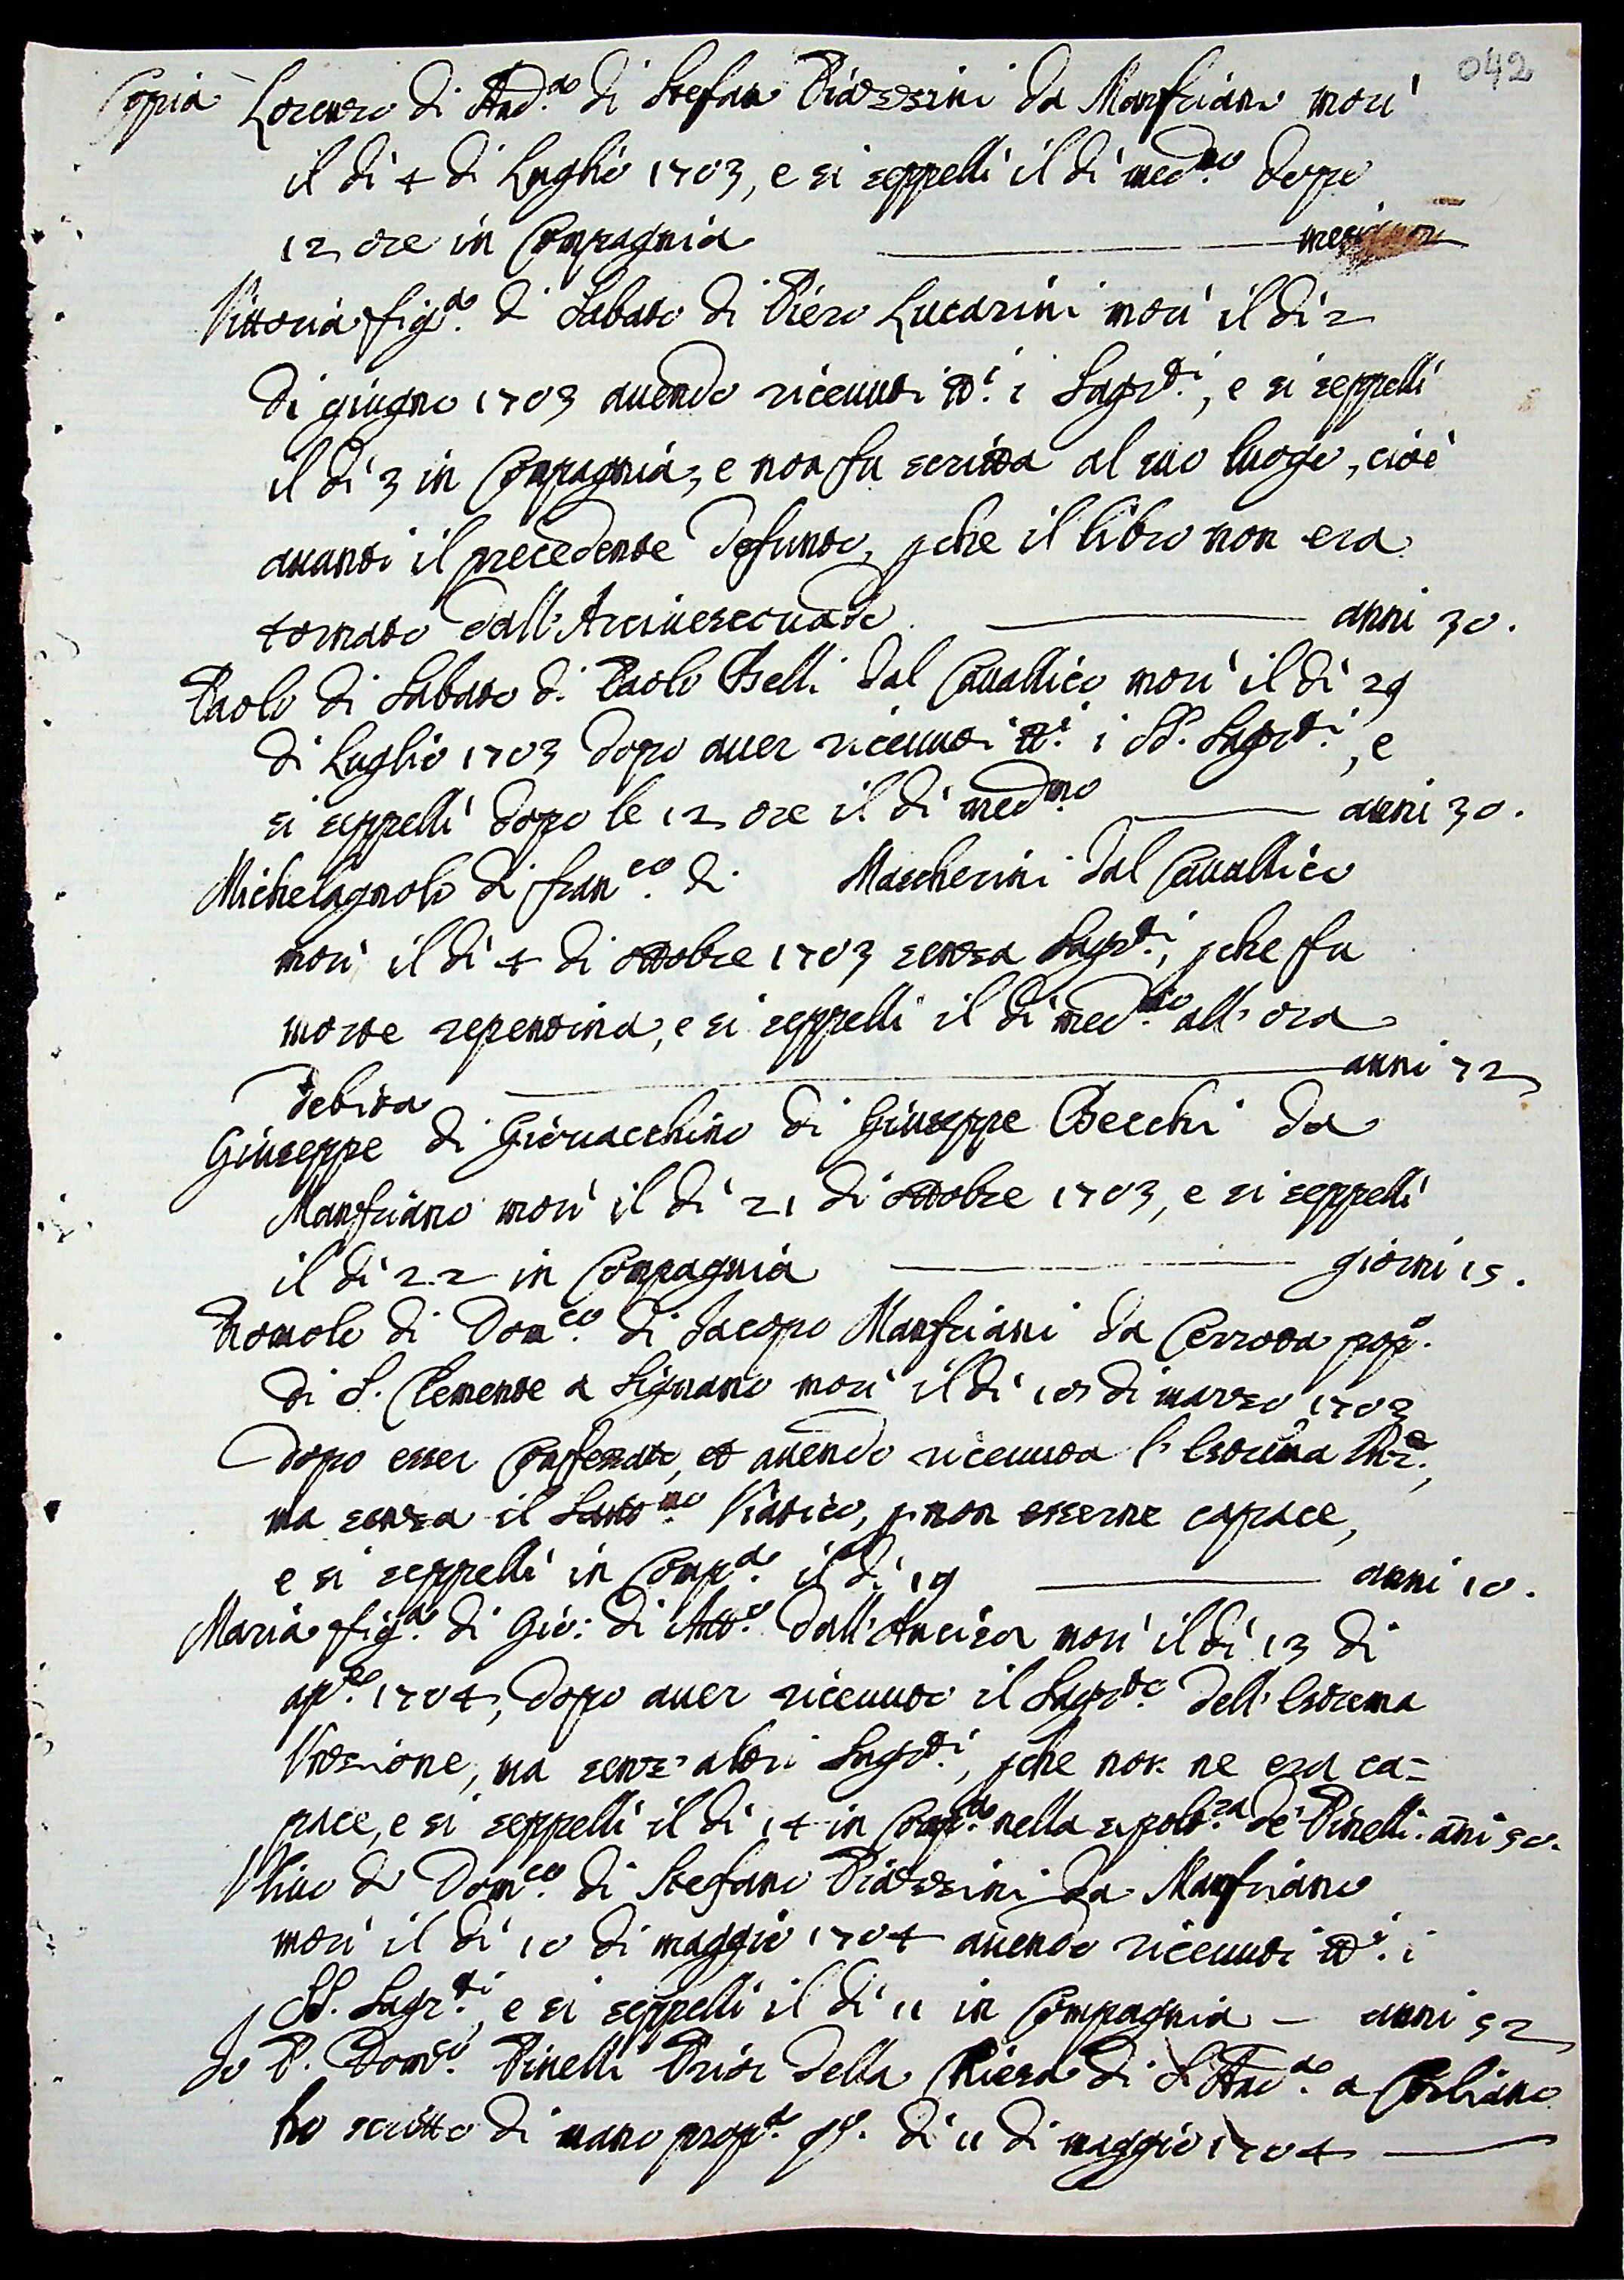 042
Copia Lorenzo di And.a di Stefano Piazzini da Manfriano morì
il dì 4 di Luglio 1703, e si seppellì il dì med.mo dopo
12 ore in Compagnia
Vittoria fig.a di Sabato di Piero Lucarini morì il dì 2
di giugno 1703 avendo ricevuti tt.i i Sagr.ti, e si seppellì
il dì 3 in Compagnia, e non fu scritta al suo luogo, cioè
avanti il precedente defunto, pche il libro non era
tornato dall'Arcivescovado anni 30.
Paolo di Sabato di Paolo Belli dal Cavallico morì il dì 29
di Luglio 1703 dopo aver ricevuti tt.i i SS. Sagr.ti, e
si seppellì dopo le 12 ore il dì med.mo anni 30.
Michelagnolo di Fran.co di Mascherini dal Cavallico
morì il dì 4 di ottobre 1703 senza Sagr.ti, pche fu
morte repentina, e si seppellì il dì med.mo all'ora
debita anni 72
Giuseppe di Giovacchino di Giuseppe Becchi da
Manfriano morì il dì 21 di ottobre 1703, e si seppellì
il dì 22 in Compagnia giorni 15.
Romolo di Dom.co di Jacopo Manfriani da Cerrota pop.o
di S. Clemente a Signano morì il dì 18 di marzo 1703
dopo esser Confessato, et avendo ricevuta l'Estrema
ma senza il Sant.mo Viatico, p non esserne capace,
e si seppellì in Comp.a il dì 19 anni 10.
Maria fig.a di Gio: di Att.o dall'Ancisa morì il dì 13 di
ap.le 1704, dopo aver ricevuto il Sagr.to dell'Estrema
Unzione, ma senz'altri Sagr.ti, pche non ne era ca=
pace, e si seppellì il dì 14 in Comp.a nella sepolt.ra de' Pinelli. anni 50.
Ulivo di Dom.co di Stefano Piazzini da Manfriano
morì il dì 10 di maggio 1704 avendo ricevuti tt.i i
SS. Sagr.ti, e si seppellì il dì 11 in Compagnia – anni 52
Io P. Dom.co Pinelli Prior della Chiesa di S. And.a a
ho scritto di mano prop.a q.o dì 11 di maggio 1704